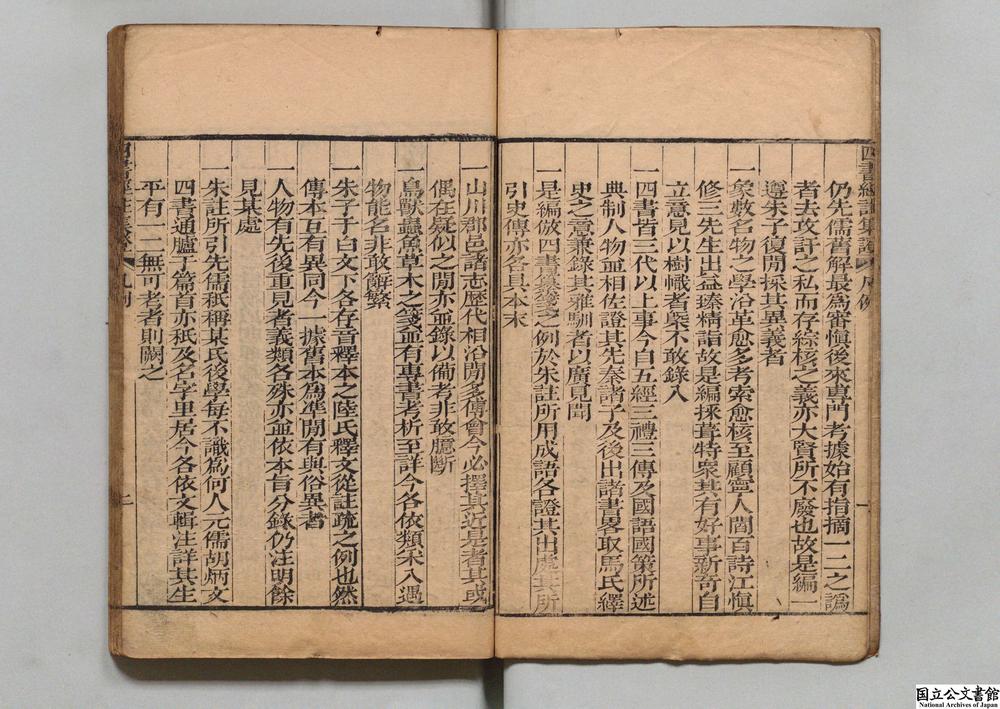 仍先儒舊解最為審愼後來專門考據始有指摘一二之譌
者去攻訐之私而存綜核之義亦大賢所不廢也故是編一
遵朱子復閒採其異義者
一象數名物之學沿革愈多考索愈核至顧寧人閻百詩江愼
修三先生出益臻精詣故是編採葺特衆其有好事新奇自
立意見以樹幟者槩不敢錄入
一四書皆三代以上事今自五經三禮三傳及國語國策所述
典制人物並相佐證其先秦諸子及後出諸書畧取馬氏繹
史之意兼錄其雅馴者以廣見聞
一是編倣四書之例於朱註所用成語各證其出處其所
引史傳亦各具本末
一山川郡邑諸志歷代相沿閒多傅會今必擇其近是者其或
偶在疑似之閒亦並錄以備考非敢臆斷
一鳥獸蟲魚草木之箋並有專書考析至詳今各依類采入遇
物能名非敢辭繁
一朱子于白文下各存音釋本之陸氏釋文從註疏之例也然
傳本互有異同今一據舊本為準閒有與俗異者
一人物有先後重見者義類各殊亦並依本旨分錄仍注明餘
見某處
一朱註所引先儒祇稱某氏後學每不識為何人元儒胡炳文
四書通臚于篇首亦祇及名字里居今各依文輯注詳其生
平有一二無可考者則闕之
凡例
二
国立公文書館
National Archives of Japan